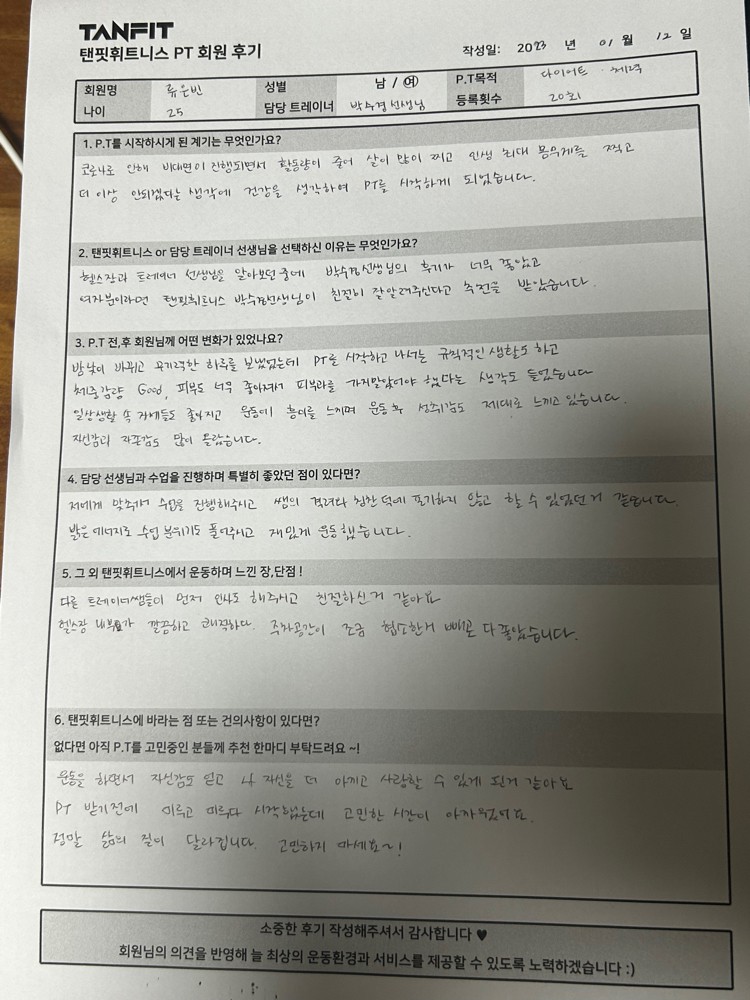 TANFIT
탠핏휘트니스 PT 회원 후기
작성일: 2023 년 01 월 12 일
회원명 류은빈 성별 남 / 여 P.T목적 다이어트 · 체력
나이 25 담당 트레이너 박수경 선생님 등록횟수 20회
1. P.T를 시작하시게 된 계기는 무엇인가요?
코로나로 인해 비대면이 진행되면서 활동량이 줄어 살이 많이 찌고 인생 최대 몸무게를 찍고
더 이상 안되겠다는 생각에 건강을 생각하여 PT를 시작하게 되었습니다.
2. 탠핏휘트니스 or 담당 트레이너 선생님을 선택하신 이유는 무엇인가요?
헬스장과 트레이너 선생님을 알아보던 중에 박수경선생님의 후기가 너무 좋았고
여자분이라면 탠핏휘트니스 박수경선생님이 친절히 잘알려주신다고 추천을 받았습니다.
3. P.T 전,후 회원님께 어떤 변화가 있었나요?
밤낮이 바뀌고 무기력한 하루를 보냈었는데 PT를 시작하고 나서는 규칙적인 생활도 하고
체중감량 Good, 피부도 너무 좋아져서 피부과를 가지말았어야 했다는 생각도 들었습니다
일상생활 속 자세들도 좋아지고 운동에 흥미를 느끼며 운동 후 성취감도 제대로 느끼고 있습니다.
자신감과 자존감도 많이 올랐습니다.
4. 담당 선생님과 수업을 진행하며 특별히 좋았던 점이 있다면?
저에게 맞춰서 수업을 진행해주시고 쌤의 격려와 칭찬 덕에 포기하지 않고 할 수 있었던거 같습니다.
밝은 에너지로 수업 분위기도 풀어주시고 재밌게 운동했습니다.
5. 그 외 탠핏휘트니스에서 운동하며 느낀 장,단점 !
다른 트레이너쌤들이 먼저 인사도 해주시고 친절하신거 같아요
헬스장 내부가 깔끔하고 쾌적하다. 주차공간이 조금 협소한거 빼곤 다 좋았습니다.
6. 탠핏휘트니스에 바라는 점 또는 건의사항이 있다면?
없다면 아직 P.T를 고민중인 분들께 추천 한마디 부탁드려요 ~!
운동을 하면서 자신감도 얻고 나 자신을 더 아끼고 사랑할 수 있게 된거 같아요
PT 받기전에 미루고 미루다 시작했는데 고민한 시간이 아까웠어요.
정말 삶의 질이 달라집니다. 고민하지 마세요~!
소중한 후기 작성해주셔서 감사합니다 ♥
회원님의 의견을 반영해 늘 최상의 운동환경과 서비스를 제공할 수 있도록 노력하겠습니다 :)